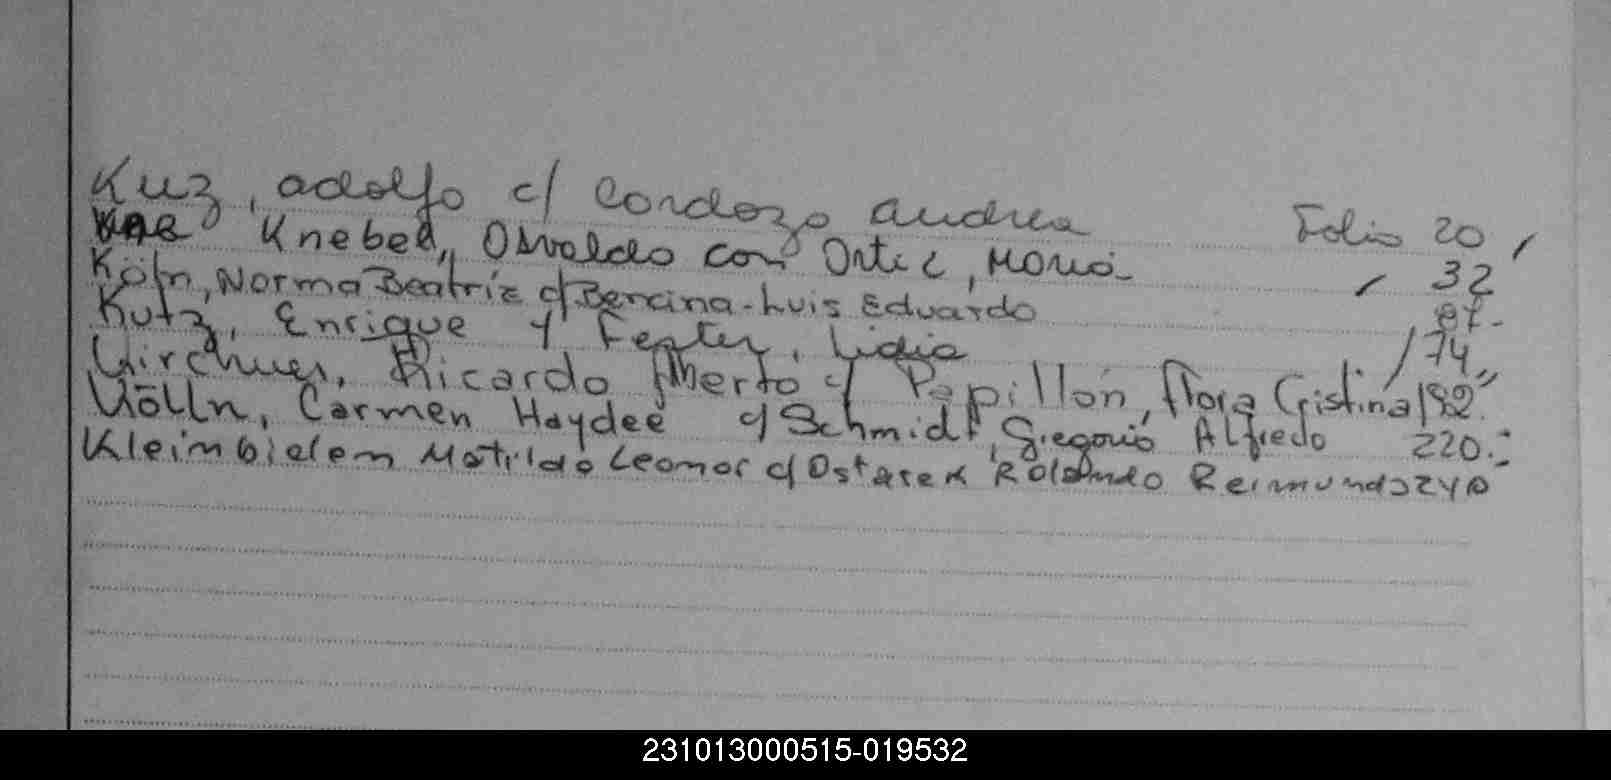 Kuz, adolfo c/ Cordozo andrea Folio 20
Knebel, Osvaldo con Ortiz, Maria 32
Köln, Norma Beatriz c/ Bencina - Luis Eduardo 87-
Kutz, Enrique y Fester, Lidia 74
Kirchner, Ricardo Alberto c/ Papillón, Flora Cristina 182
Kölln, Carmen Haydeé c/ Schmidt, Gregorio Alfredo 220
Matilde Leonor c/ Rolando Reimundo
231013000515-019532